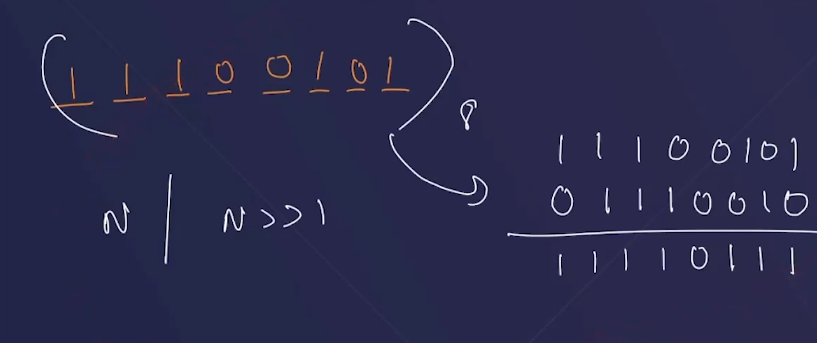 (11100101)8
11100101
01110010
11110111
N | N>>1